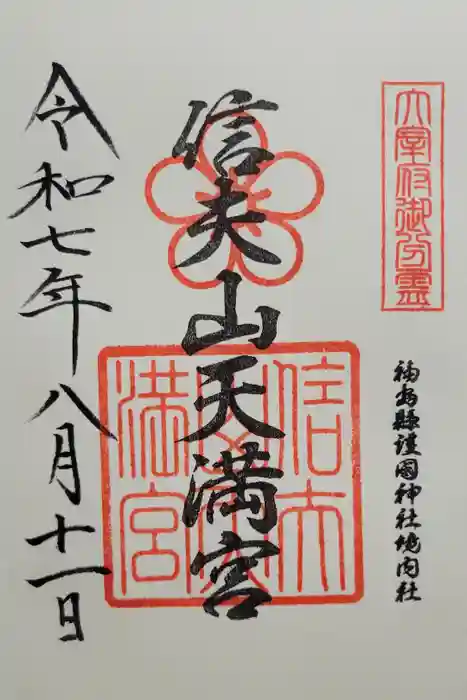 大宰府御分霊
福島縣護國神社境内社
信夫山天満宮
信夫
山天
満宮
令和七年八月十一日